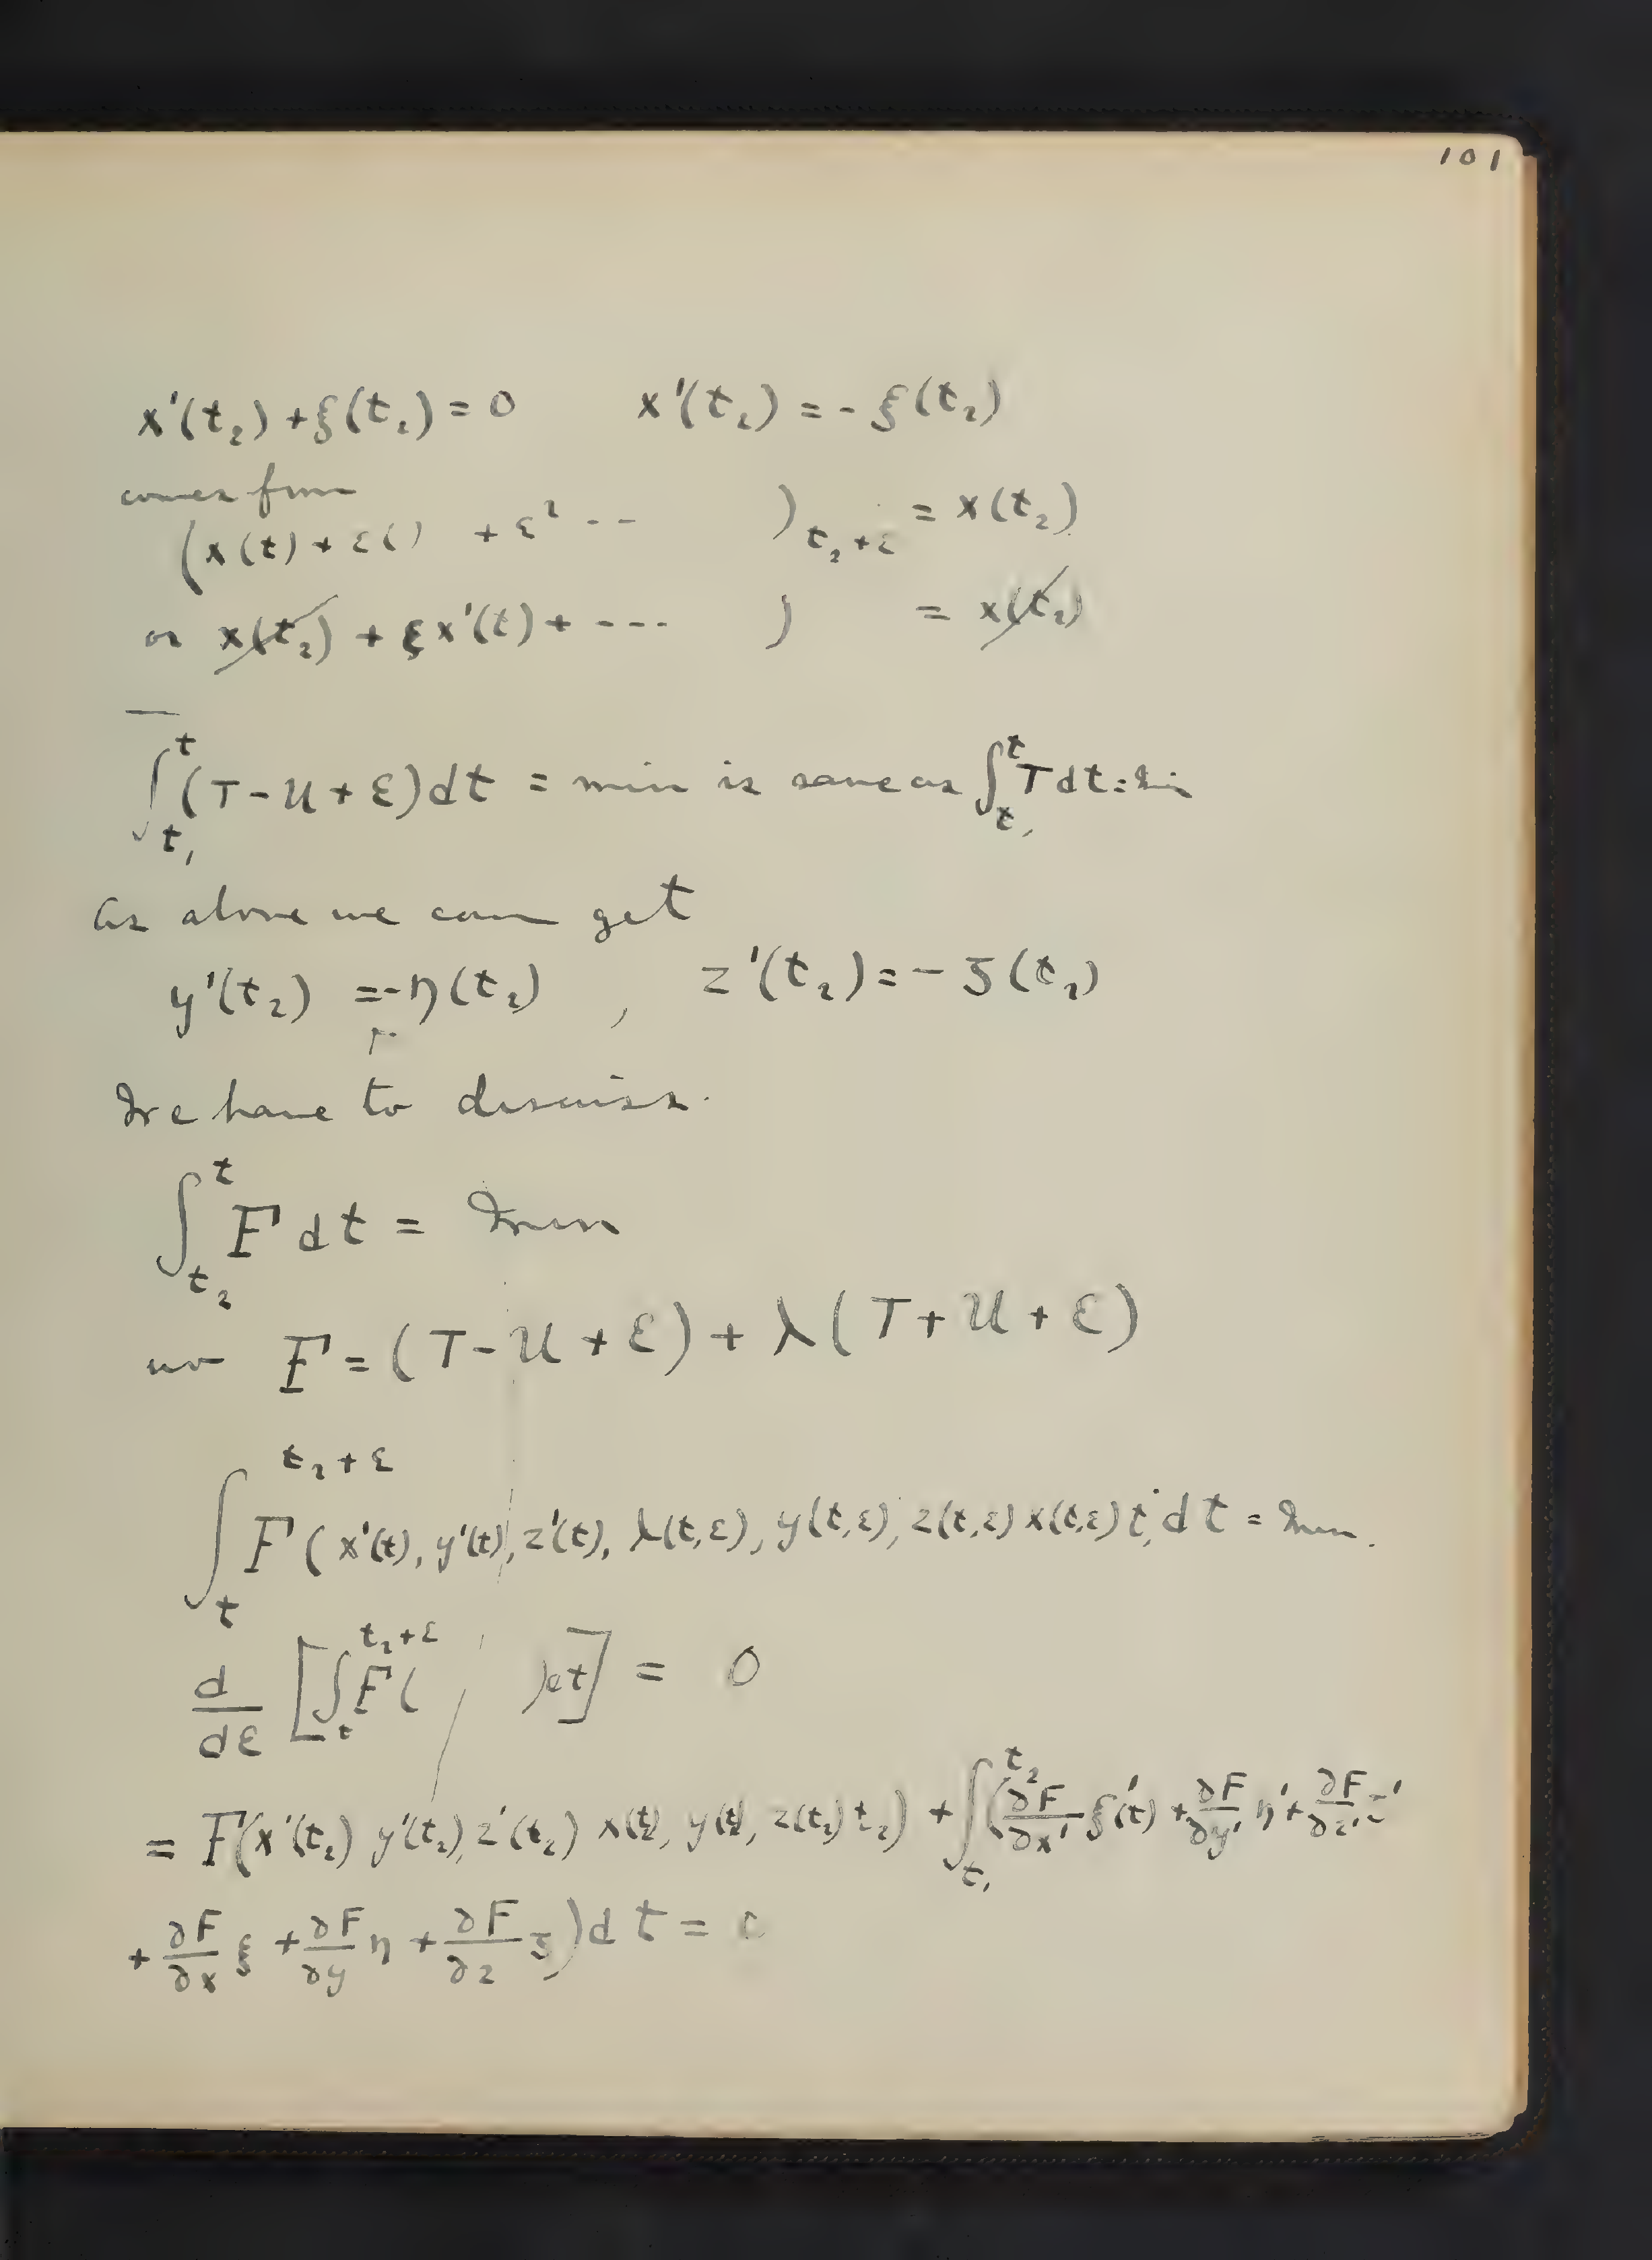 101
x'(t₂) + ξ(t₂) = 0 x'(t₂) = - ξ(t₂)
comes from
(x(t) + ε( ) + ε² -- )ₜ₂₊ε = x(t₂)
or x(t₂) + ε x'(t) + ---- ) = x(t₂)
∫ₜ₁ᵗ (T - U + ε) dt = min is same as ∫ₜ₁ᵗ T dt = Min
as above we can get
y'(t₂) = - η(t₂) , z'(t₂) = - ζ(t₂)
We have to discuss.
∫ₜ₂ᵗ F dt = Min
F = (T - U + ε) + λ(T + U + ε)
∫ₜ^(t₂+ε) F(x'(t), y'(t), z'(t), λ(t,ε), y(t,ε), z(t,ε) x(t,ε) t, dt = Min.
d/dε [∫ₜ^(t₂+ε) F( )dt] = 0
= F(x'(t₂) y'(t₂), z'(t₂) x(t₂), y(t₂), z(t₂) t₂) + ∫ₜ₁^(t₂) (∂F/∂x' ξ'(t) + ∂F/∂y' η' + ∂F/∂z' ζ'
+ ∂F/∂x ξ + ∂F/∂y η + ∂F/∂z ζ) dt = 0